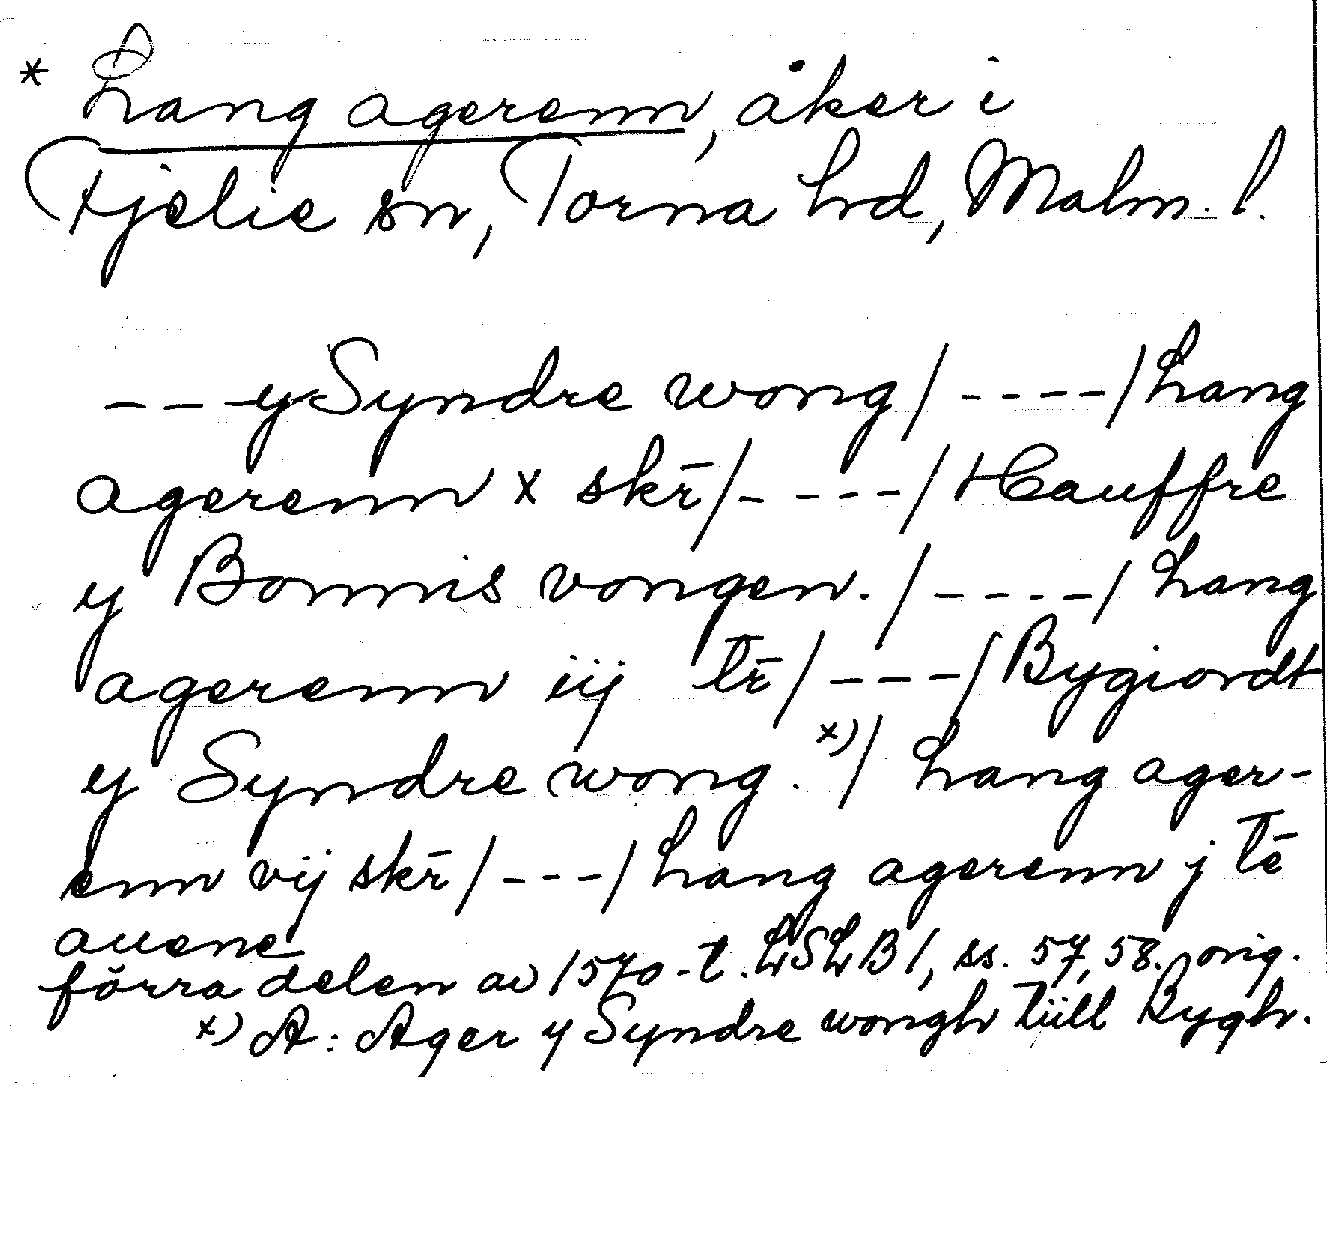 * Lang agerenn, åker i
Fjelie sn, Torna hd, Malm. l.
---y Syndre wong/----/Lang
agerenn x skr̄/----/Hauffre
y Bonnis vongen./----/Lang
agerenn iij tr̄/---/Bygiordt
y Syndre wong.x)/ Lang ager-
enn vij skr̄/---/Lang agerenn j tē
auene
förra delen av 1570-t. LSLB1, ss. 57, 58. orig.
x) A: Ager y Syndre wongh tiill Bygh.